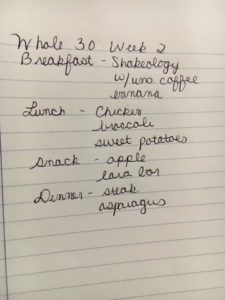 Whole 30 Week 2
Breakfast - Shakeology
w/uno coffee
banana
Lunch - Chicken
broccoli
sweet potatoes
Snack - apple
lara bar
Dinner - steak
asparagus